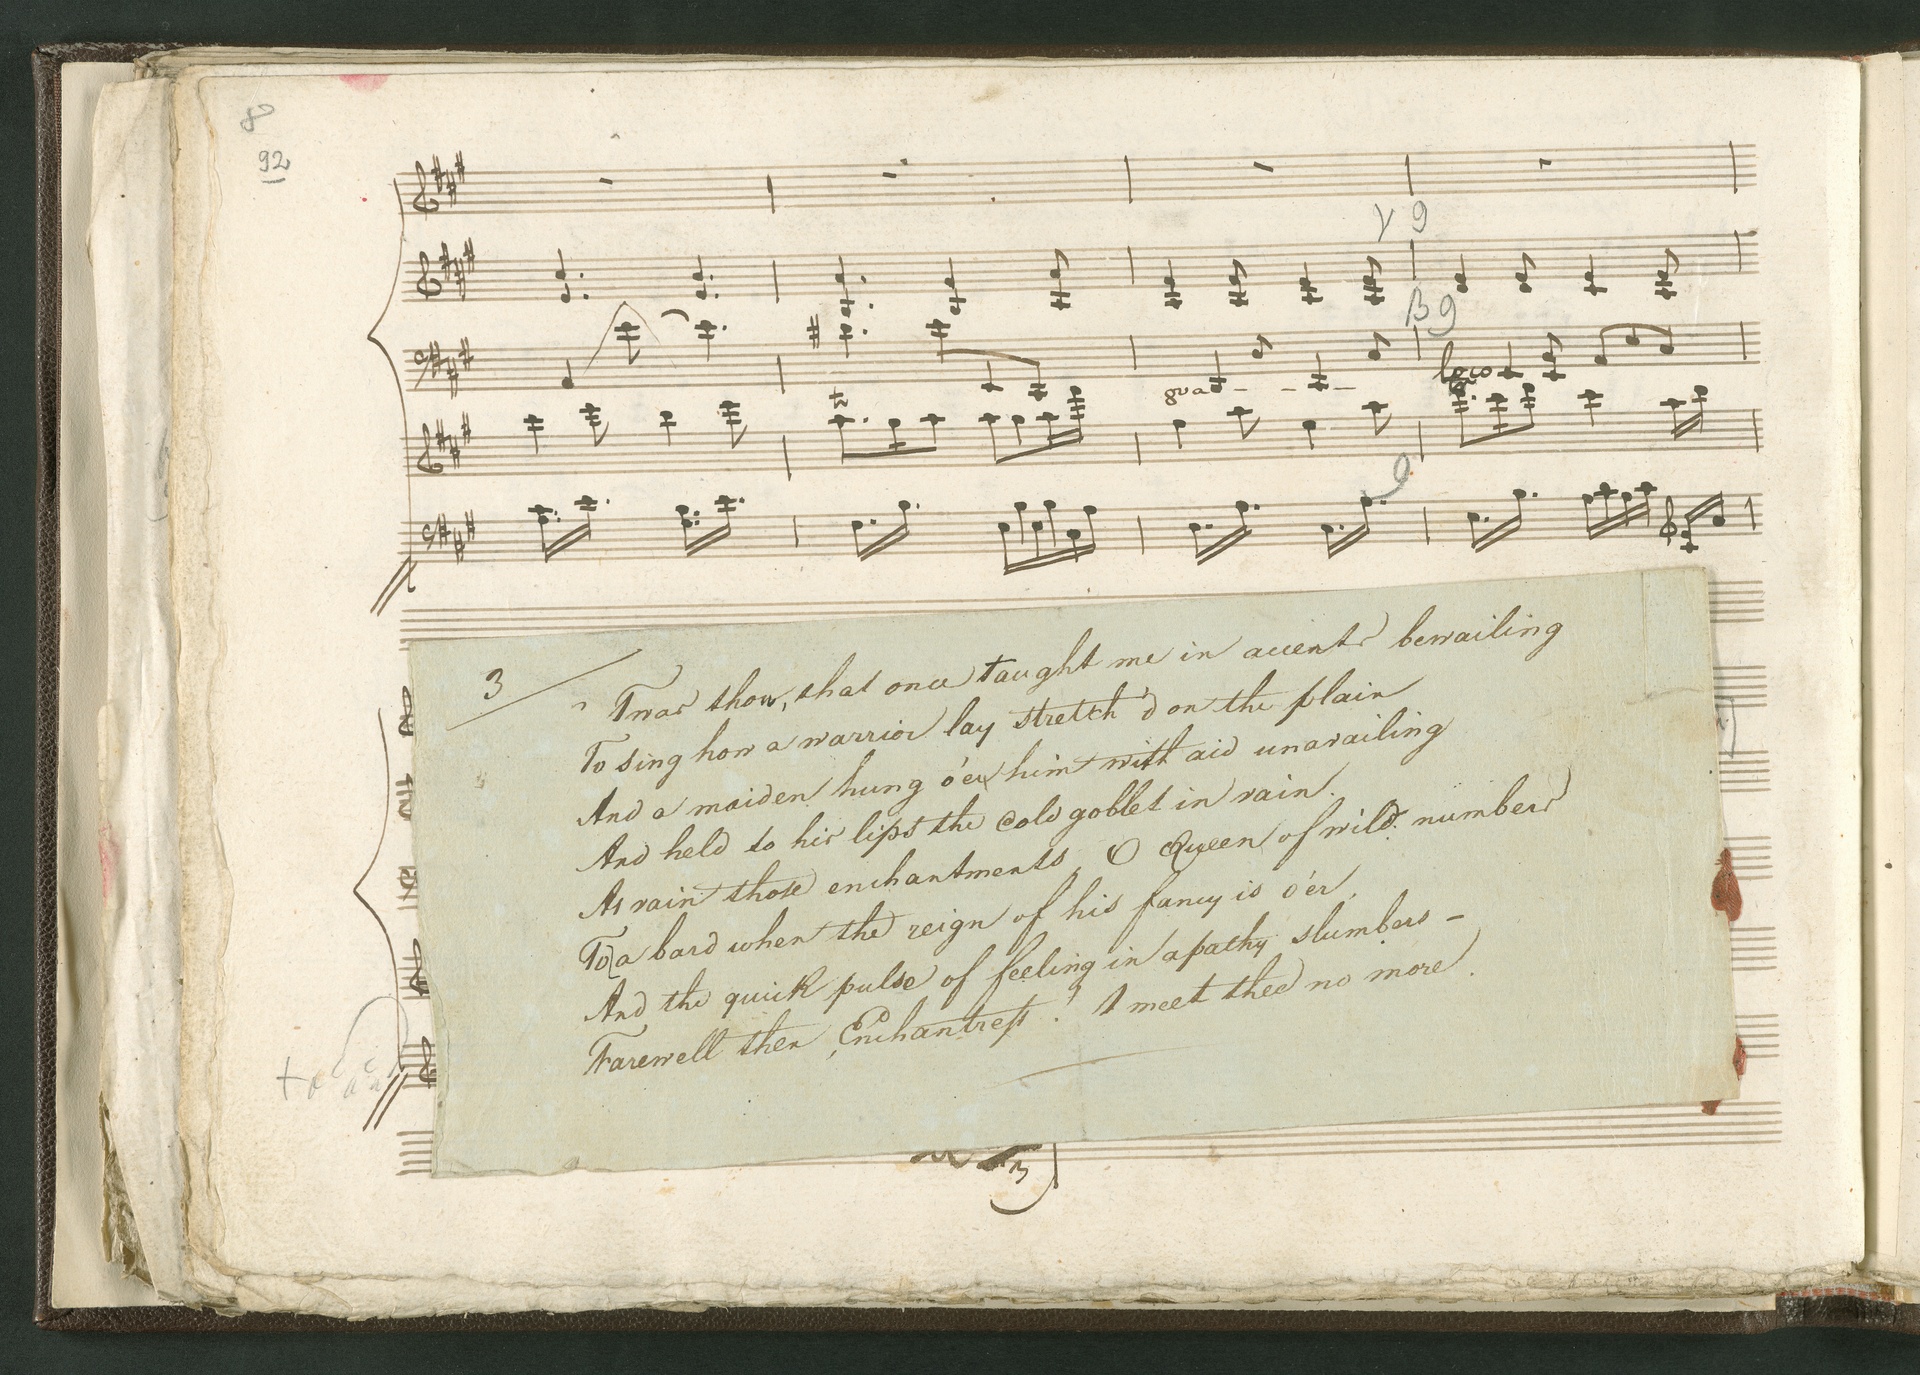 8
92
γ 9
B 9
8va
loco
3
Twas thou, that once taught me in accents bewailing
To sing how a warrior lay stretch'd on the plain
And a maiden hung o'er him with aid unavailing
And held to his lips the cold goblet in vain.
As vain those enchantments, O Queen of wild numbers
To a bard when the reign of his fancy is o'er,
And the quick pulse of feeling in apathy slumbers –
Farewell then, Enchantress! I meet thee no more.